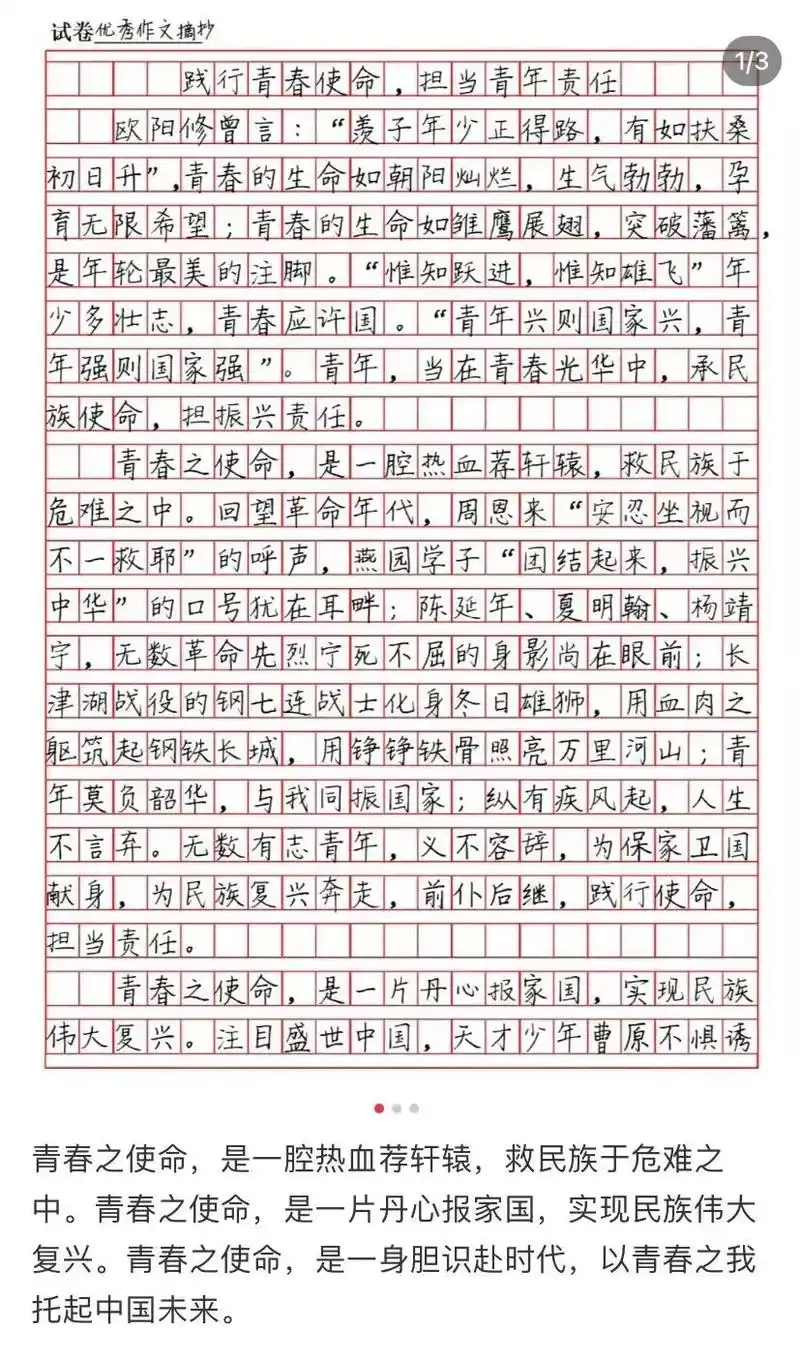 试卷优秀作文摘抄
1/3
践行青春使命，担当青年责任
欧阳修曾言：“羡子年少正得路，有如扶桑
初日升”，青春的生命如朝阳灿烂，生气勃勃，孕
育无限希望；青春的生命如雏鹰展翅，突破藩篱，
是年轮最美的注脚。“惟知跃进，惟知雄飞”年
少多壮志，青春应许国。“青年兴则国家兴，青
年强则国家强”。青年，当在青春光华中，承民
族使命，担振兴责任。
青春之使命，是一腔热血荐轩辕，救民族于
危难之中。回望革命年代，周恩来“安忍坐视而
不一救耶”的呼声，燕园学子“团结起来，振兴
中华”的口号犹在耳畔；陈延年、夏明翰、杨靖
宇，无数革命先烈宁死不屈的身影尚在眼前；长
津湖战役的钢七连战士化身冬日雄狮，用血肉之
躯筑起钢铁长城，用铮铮铁骨照亮万里河山；青
年莫负韶华，与我同振国家；纵有疾风起，人生
不言弃。无数有志青年，义不容辞，为保家卫国
献身，为民族复兴奔走，前仆后继，践行使命，
担当责任。
青春之使命，是一片丹心报家国，实现民族
伟大复兴。注目盛世中国，天才少年曹原不惧诱
青春之使命，是一腔热血荐轩辕，救民族于危难之
中。青春之使命，是一片丹心报家国，实现民族伟大
复兴。青春之使命，是一身胆识赴时代，以青春之我
托起中国未来。